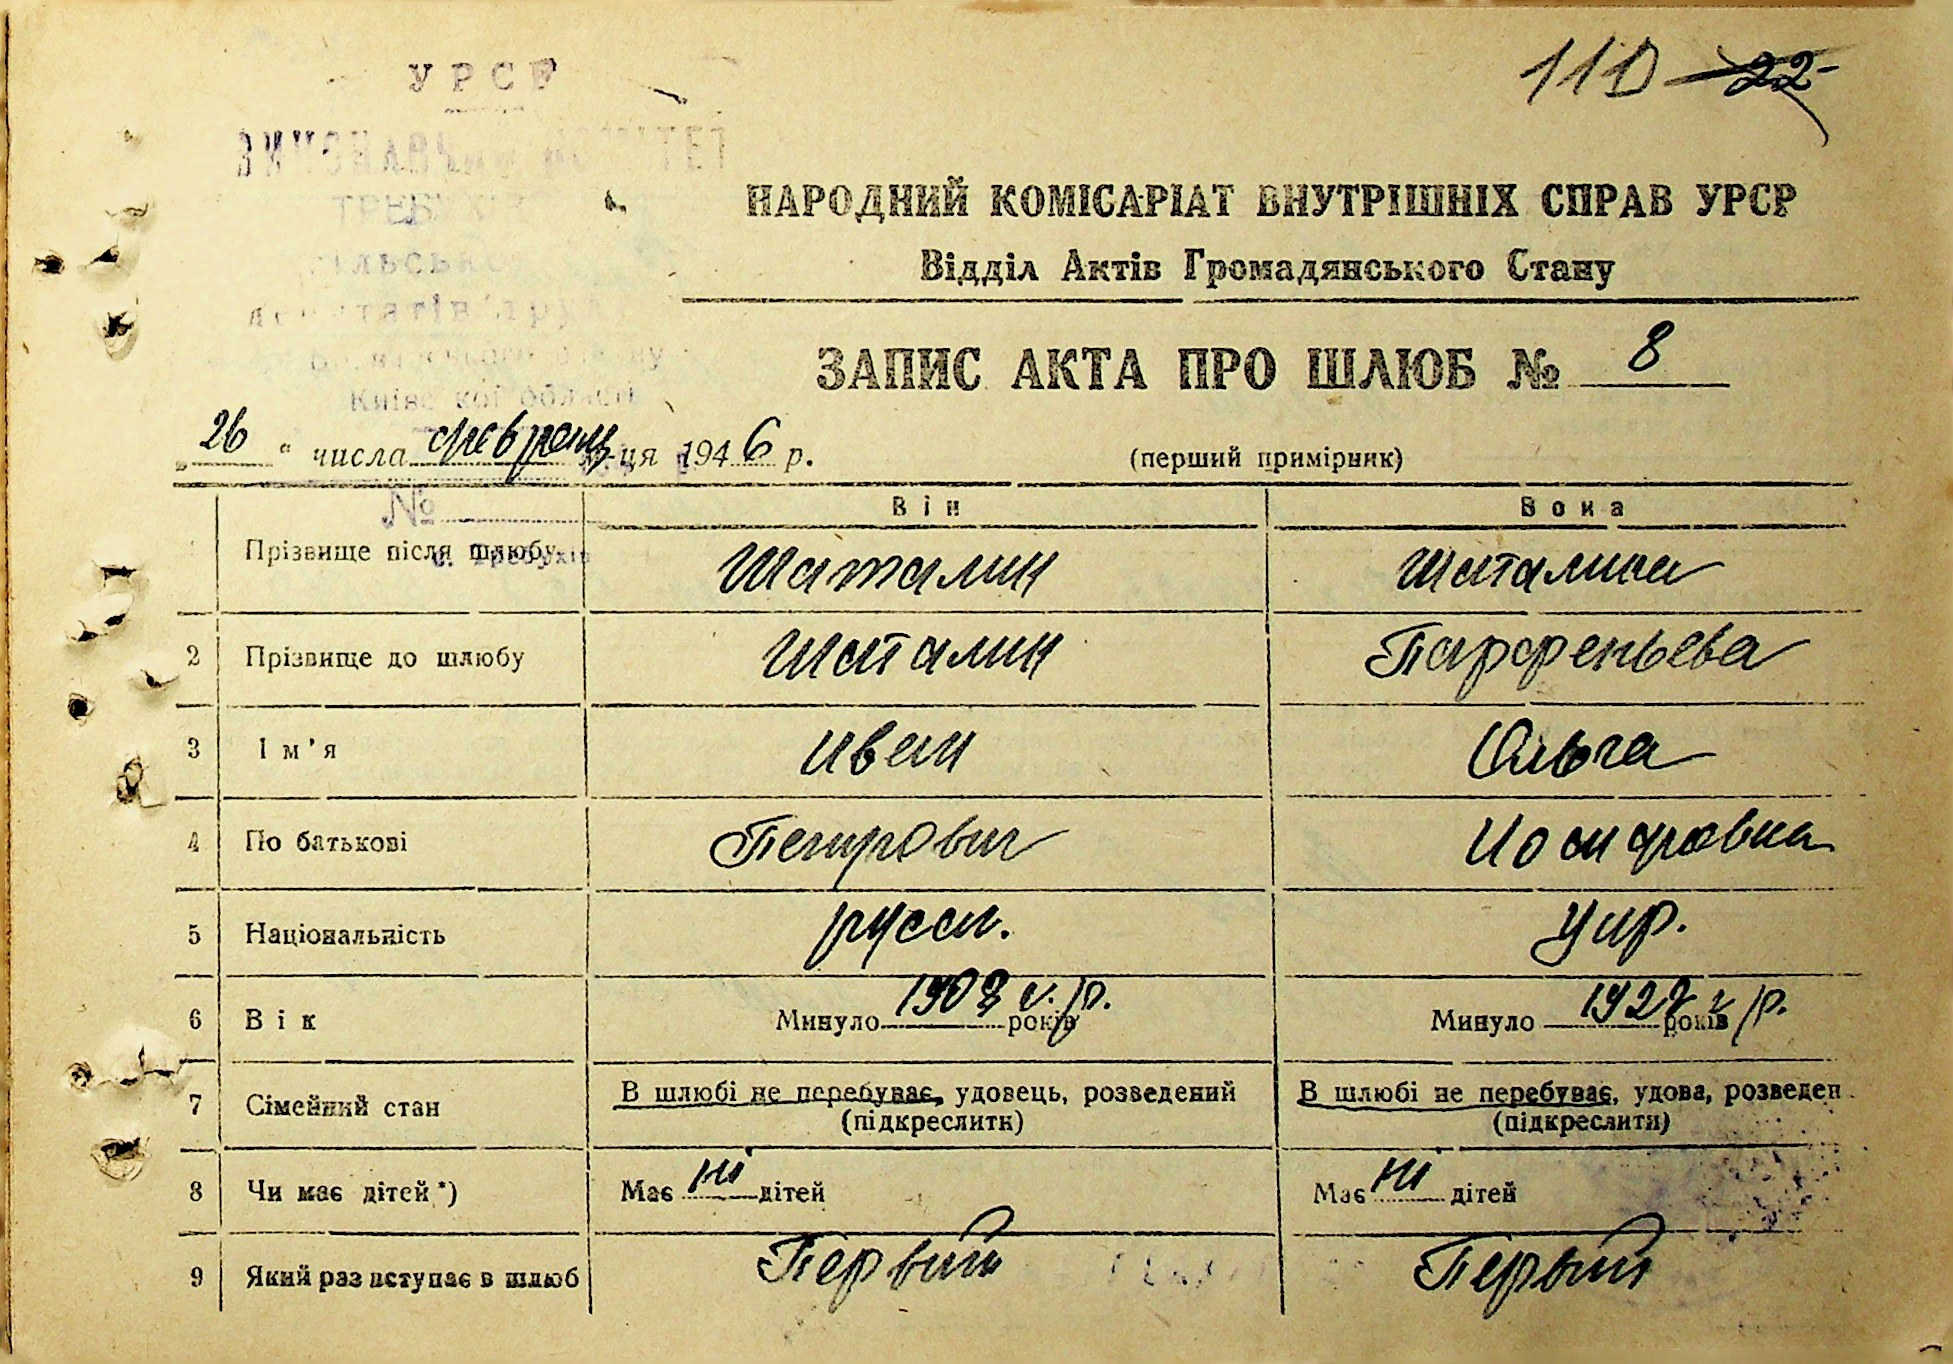 110 22
УРСР
ВИКОНАВЧИЙ КОМІТЕТ
НАРОДНИЙ КОМІСАРІАТ ВНУТРІШНІХ СПРАВ УРСР
Відділ Актів Громадянського Стану
Київської області
ЗАПИС АКТА ПРО ШЛЮБ № 8
„26“ числа февраля м-ця 1946 р.
(перший примірник)
№
с. Требухів
Він Вона
Прізвище після шлюбу Шаталин Шаталина
2 Прізвище до шлюбу Шаталин Парфеньева
3 Ім'я Иван Ольга
4 По батькові Петрович Иосифовна
5 Національність русск. укр.
6 Вік Минуло 1908 г./р. років Минуло г/р. років
7 Сімейний стан В шлюбі не перебуває, удовець, розведений В шлюбі не перебуває, удова, розведен
(підкреслити) (підкреслити)
8 Чи має дітей*) Має ні дітей Має ні дітей
9 Який раз вступає в шлюб Первый Первый